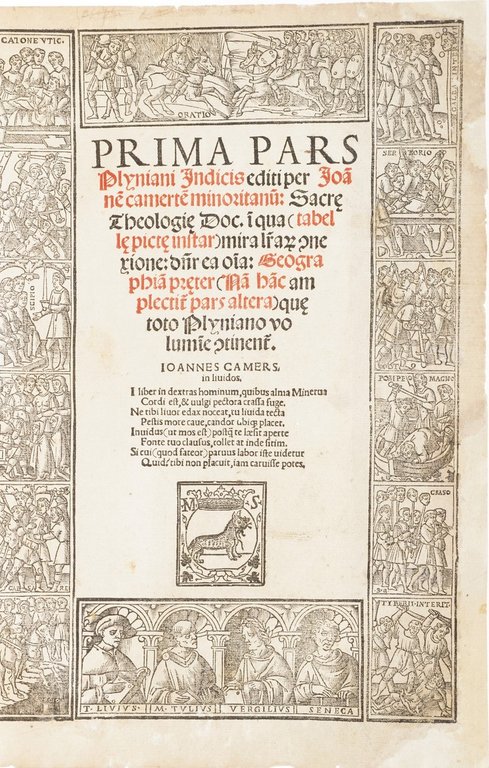 CATONE VTIC.
ORATIO
PRIMA PARS
Plyniani Indicis editi per Joã
nẽ camertẽ minoritanũ: Sacrę
Theologię Doc. ĩ qua (tabel
lę pictę instar) mira lr̃aꝝ ↄne
xione: dñr ea oĩa: Geogra
phiã pręter (Nã hãc am
plectit᷑ pars altera) quę
toto Plyniano vo
lumĩe ↄtinent᷑.
IOANNES CAMERS,
in liuidos.
I liber in dextras hominum, quibus alma Minerua
Cordi est, & uulgi pectora crassa fuge.
Ne tibi liuor edax noceat, tu liuida tecta
Pestis more caue, candor ubiqꝫ placet.
Inuidus (ut mos est) postq̃ te læsit aperte
Fonte tuo clausus, tollet at inde sitim.
Si cui (quod fateor) paruus labor iste uidetur
Quid? tibi non placuit, iam caruisse potes.
M S
SCIPIO
SERTORIO
POMPE MAGNO
CRASO
TYBERII·INTERIT.
T. LIVIUS·
M·TULIUS
VERGILIUS
SENECA